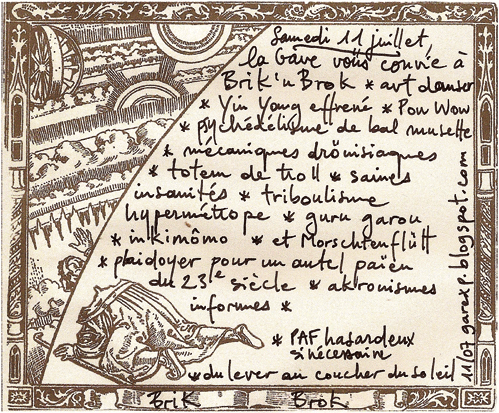 Samedi 11 juillet,
la Gare vous convie à
Brik'n Brok * art danser
* Yin Yang effréné * Pow Wow
* psychédélisme de bal musette
* mécaniques drönisiaques
* totem de troll * saines
insanités * triboulisme
hypermétrope * guru garou
* inkimômo * et Morschtenflütt
* plaidoyer pour un autel païen
du 23e siècle * akronismes
informes *
* PAF hasardeux
si nécessaire
* du lever au coucher du soleil
Brik Brok
11/07 garexp.blogspot.com